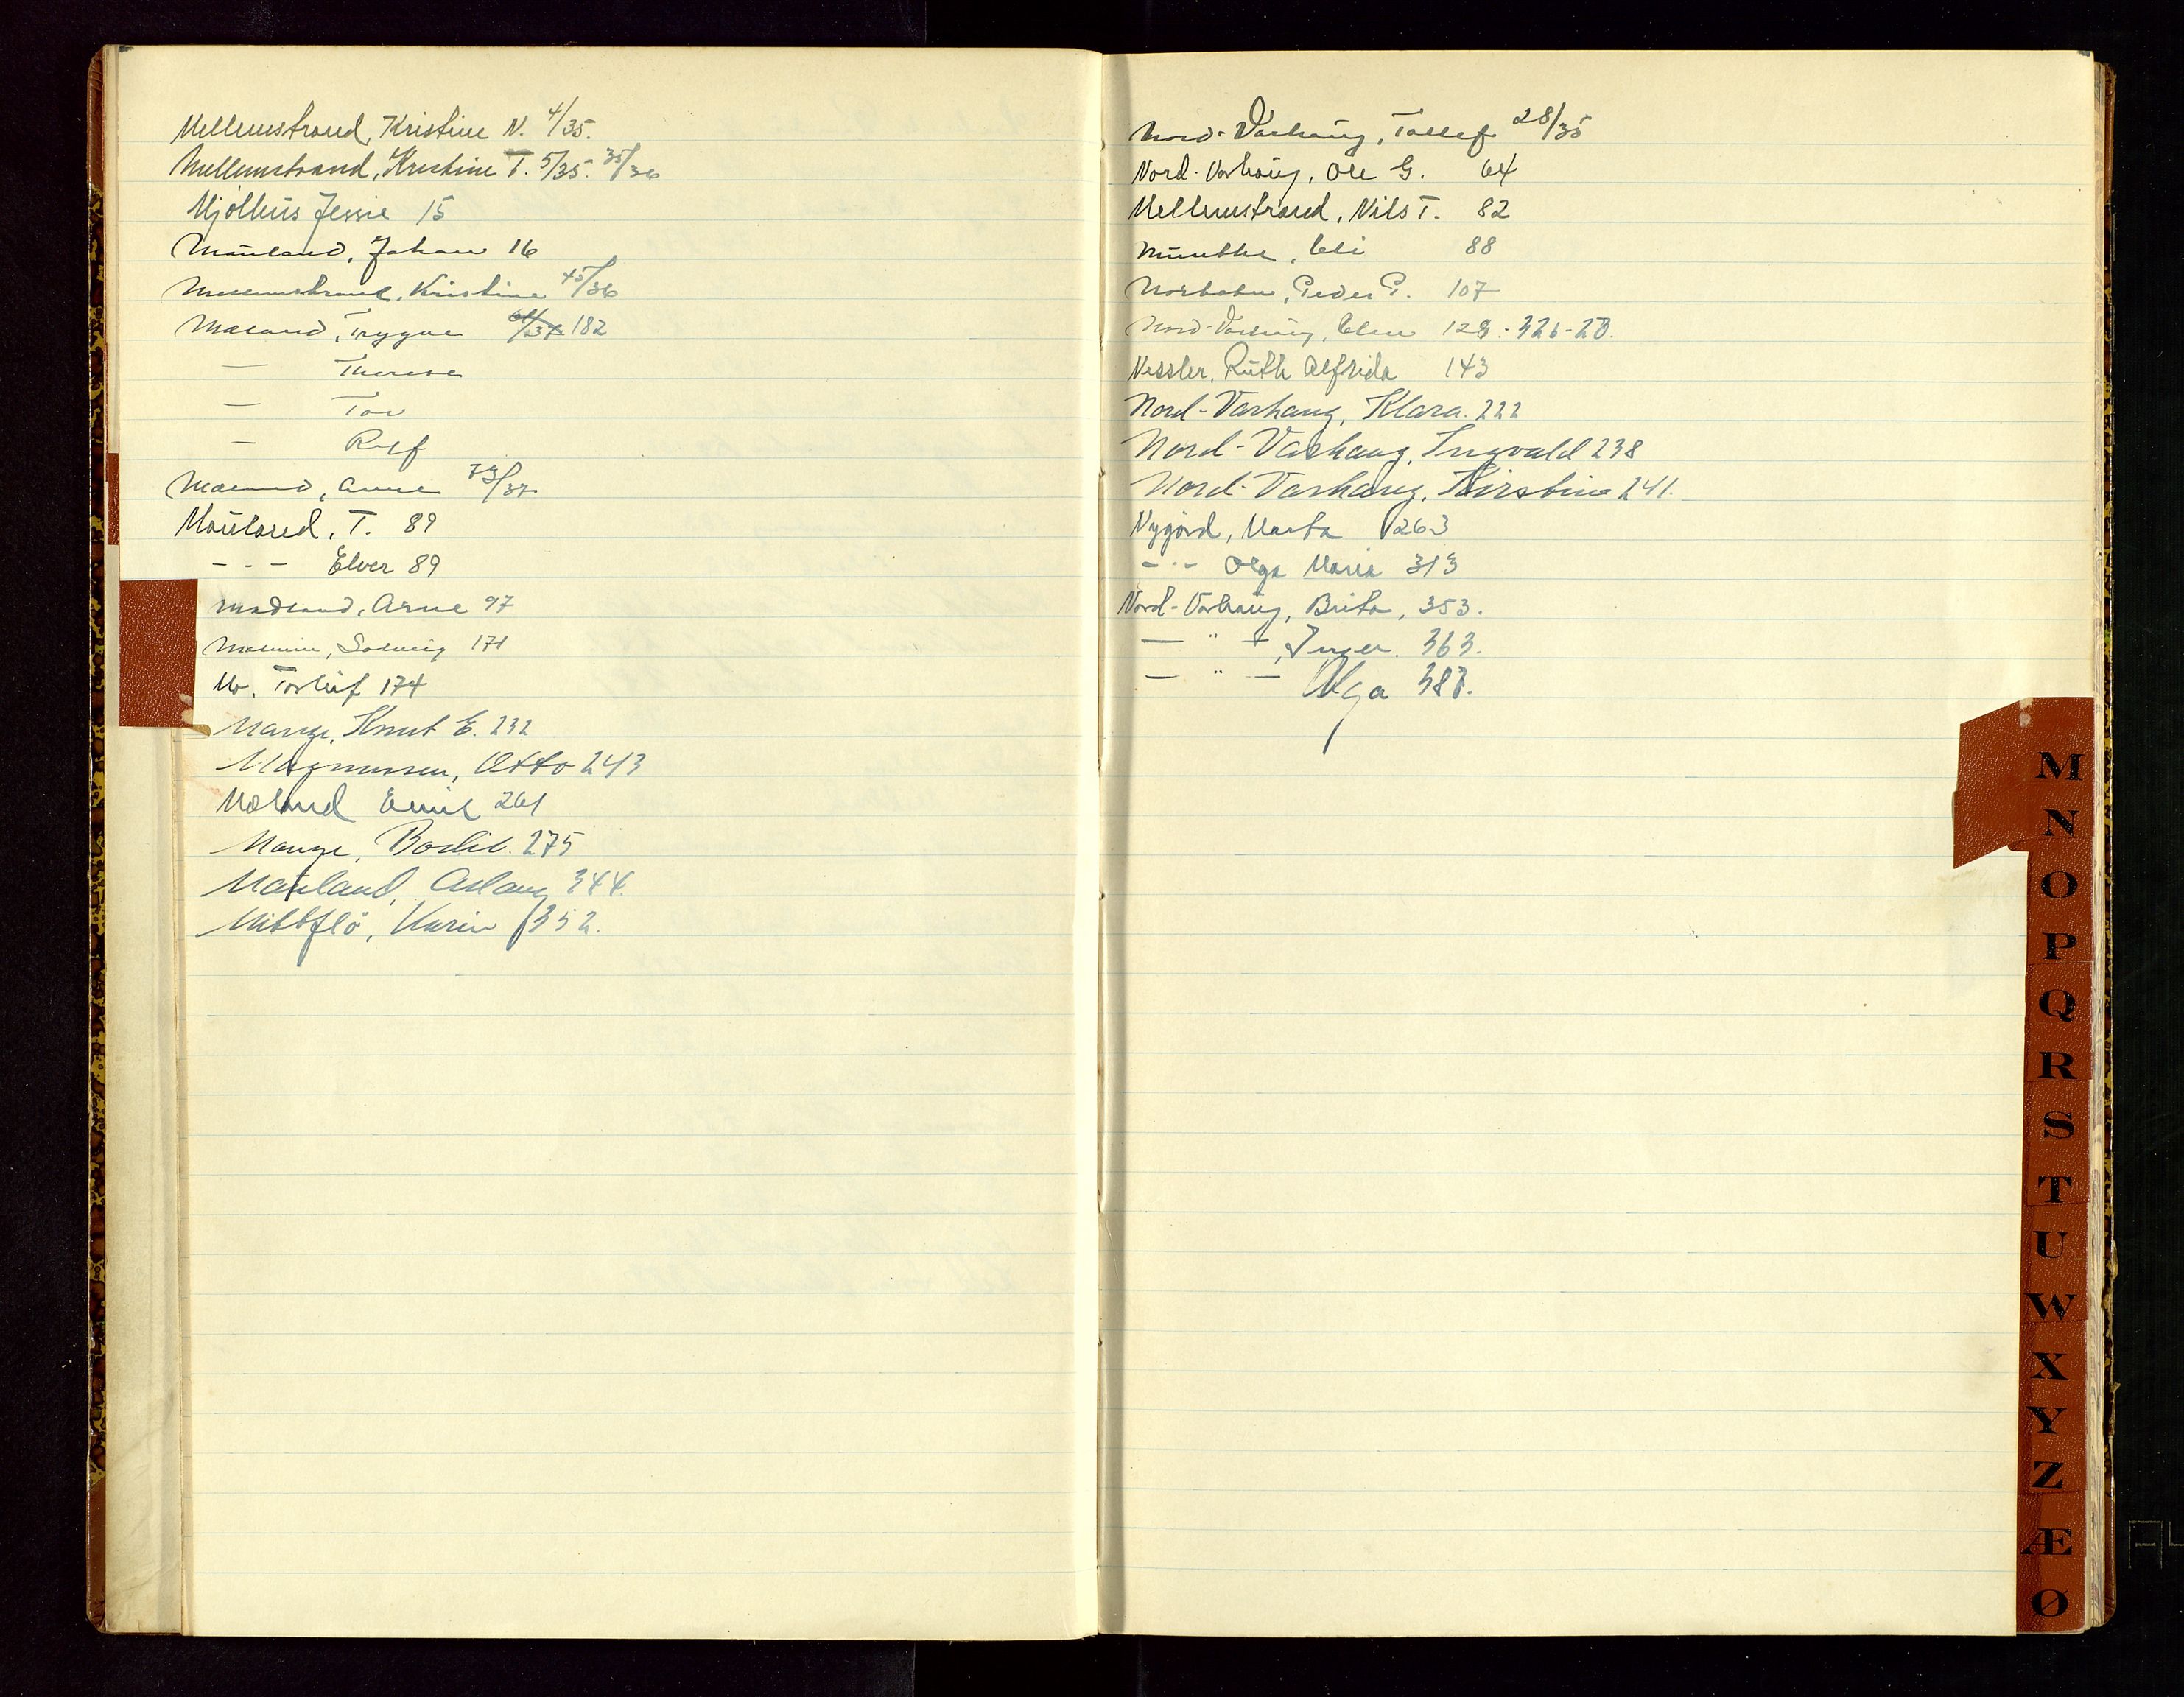 Mellemstrand, Kristine N. 4/35.
Mellemstrand, Kristine T. 5/35. 35/36
Mjølhus Jessie 15
Mauland, Johan 16
Mellemstrand, Kristine 45/36
Mæland, Trygve 182
— Therese
— Tor
— Rolf
Anne 73/37
Mauland, T. 89
- - - Elver 89
Madland, Arne 97
Solveig 171
M. Torleif 174
Mange, Knut E. 232
Magnussen, Otto 243
Mæland Emil 261
Mange, Bodil. 275
Mauland, Aslaug 344.
Mittflø, Karin 352.
Nord-Varhaug, Tollef 28/35
Nord-Varhaug, Ole G. 64
Mellemstrand, Nils T. 82
Munthe, Eli 88
Peder P. 107
Nord-Varhaug, Elen 128 - 326-28.
Nessler, Ruth Alfrida 143
Nord-Varhaug, Klara. 222
Nord-Varhaug, Ingvald 238
Nord-Varhaug, Kirstine 241.
Nygård, Marta 263
- - - Olga Maria 313
Nord-Varhaug, Brita, 353.
— " —, Inger. 363.
— " — Olga 387.
M
N
O
P
Q
R
S
T
U
W
X
Y
Z
Æ
Ø